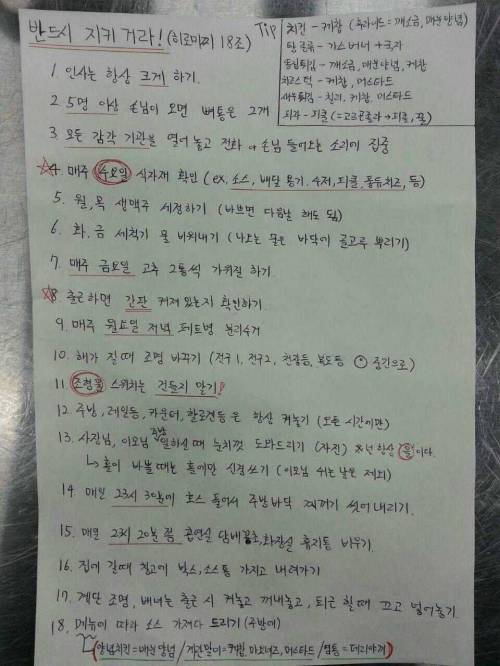 반드시 지키거라! (히로미찌 18조)
Tip
치킨 - 케찹 (후라이드 = 깨소금, 매운양념)
탕 종류 - 가스버너 + 국자
똥집튀김 - 깨소금, 매운양념, 케찹
치즈스틱 - 케찹, 머스타드
새우튀김 - 칠리, 케찹, 머스타드
피자 - 피클 (= 고르곤졸라 → 피클, 꿀)
1. 인사는 항상 크게 하기.
2. 5명 이상 손님이 오면 뻥튀은 2개
3. 모든 감각 기관을 열어놓고 전화 → 손님 들어오는 소리에 집중
☆4. 매주 수요일 식자재 확인 (ex. 소스, 배달 용기, 수저, 피클, 퐁듀치즈, 등)
5. 월, 목 생맥주 세정하기 (바쁘면 다음날 해도 됨)
6. 화, 금 세척기 물 비워내기 (나오는 물은 바닥에 골고루 뿌리기)
7. 매주 금요일 고추 2통씩 가위질 하기.
☆8 출근하면 간판 켜져 있는지 확인하기.
9. 매주 월요일 저녁 페트병 분리수거
10. 해가 질 때 조명 바꾸기 (전구1, 전구2, 천장등, 복도등 중간으로)
11 조정불 스위치는 건들지 말기!
12. 주방, 레일등, 카운터, 할로겐등은 항상 켜놓기 (모든 시간이만)
13. 사장님, 이모님 주방 일하실 때 눈치껏 도와드리기 (자진) ※넌 항상 홀이다.
↳ 홀이 바쁠때는 홀에만 신경쓰기 (이모님 쉬는 날은 제외)
14 매일 23시 30분에 호스 틀어서 주방바닥 찌꺼기 씻어내리기.
15. 매일 23시 20분 쯤 흡연실 담배꽁초, 화장실 휴지통 비우기.
16. 집에 갈때 창고에 박스, 소스통 가지고 내려가기
17. 계단 조명, 배너는 출근 시 켜놓고 꺼내놓고, 퇴근 할 때 끄고 넣어놓기
18. 메뉴에 따라 소스 가져다 드리기 (주방에)
(양념치킨 = 매운양념 / 계란말이 = 케찹, 마요네즈, 머스타드 / 염통 = 데리야끼)